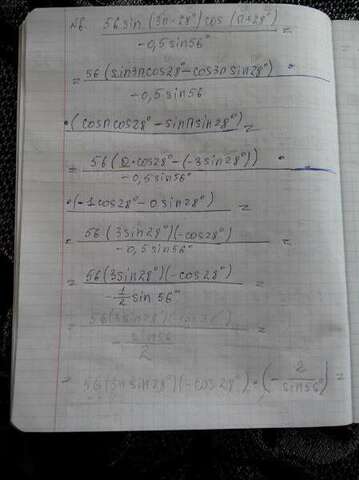 №6. 56 sin (3π-28°) cos (π+28°) =
-0,5 sin56°
= 56 (sin3π cos28° - cos3π sin28°)
-0,5 sin56
• (cosπ cos28° - sinπ sin28°) =
= 56 (0•cos28° - (-3sin28°)) •
-0,5 sin56°
•(-1cos28° - 0sin28°) =
= 56 (3sin28°)(-cos28°) =
-0,5 sin56°
= 56 (3sin28°)(-cos28°) =
-1/2 sin 56°
= 56 (3sin28°)(-cos28°) =
- sin56
2
= 56 (3 sin28°)(-cos28°) • (- 2/sin56°) =